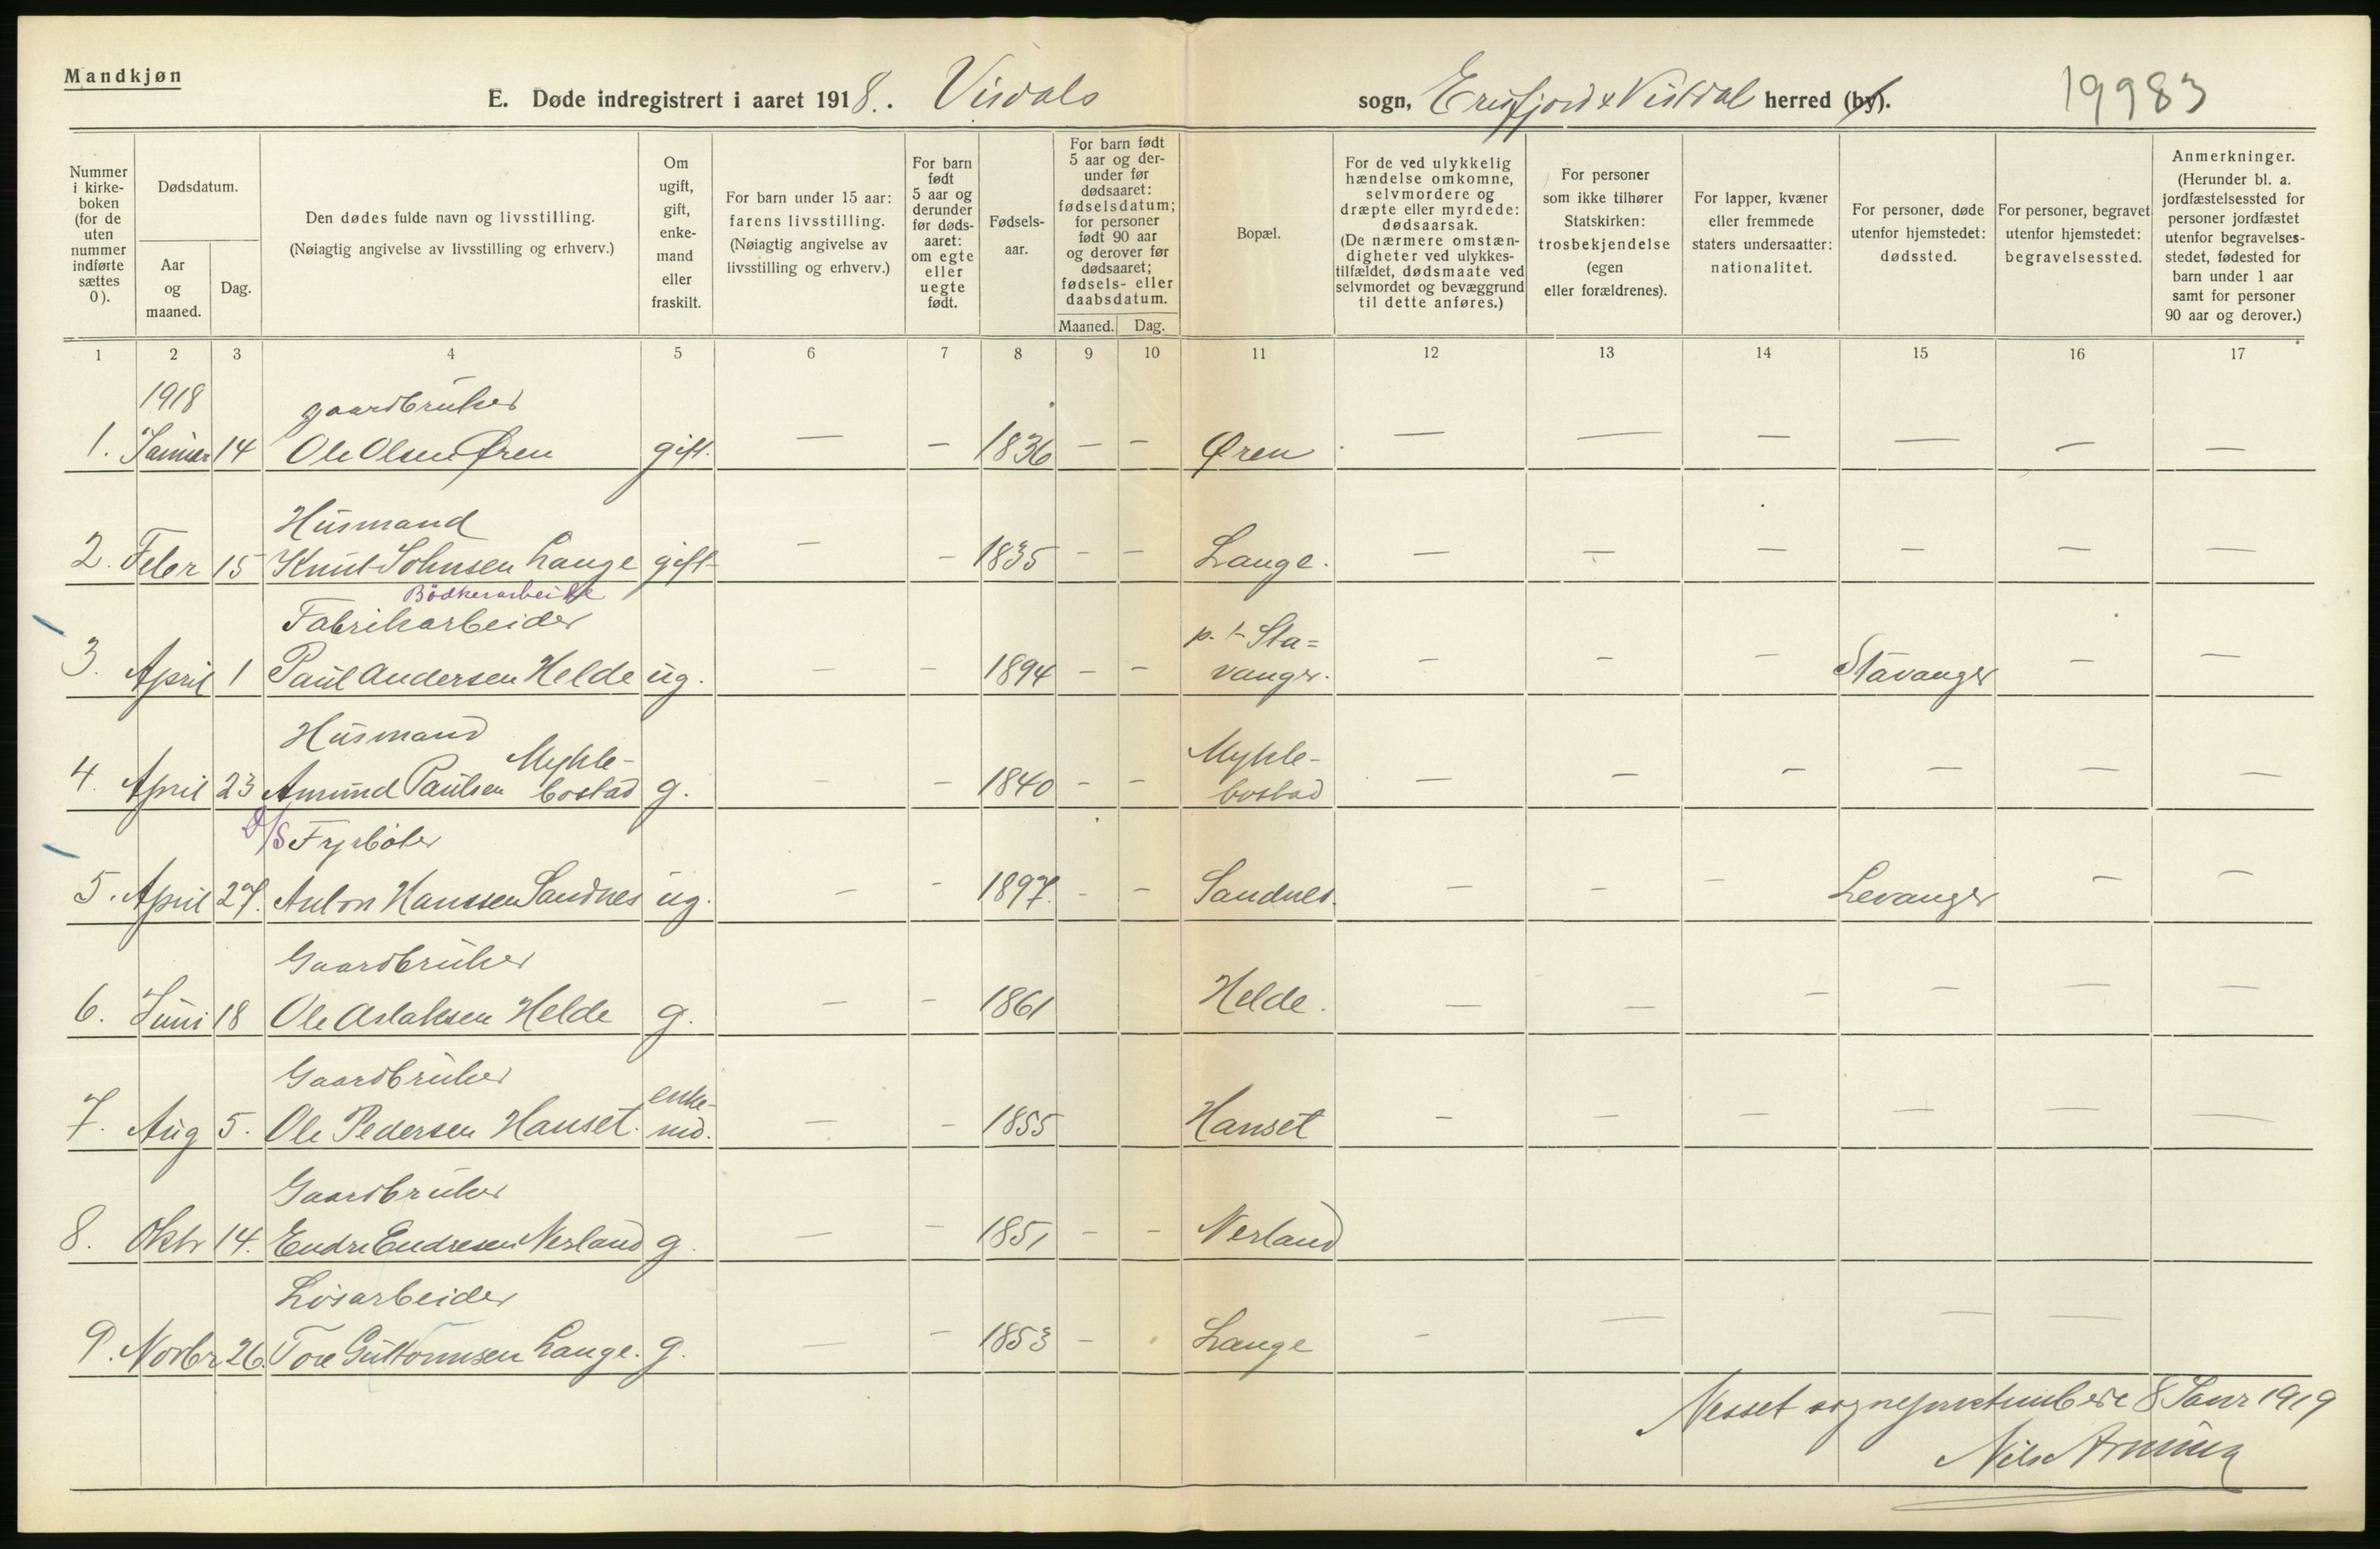 Mandkjøn
E. Døde indregistrert i aaret 1918. Visdals sogn, Erisfjord & Visdal herred (by). 19983
Nummer i kirke-boken (for de uten nummer indførte sættes 0).
Dødsdatum.
Aar og maaned.
Dag.
Den dødes fulde navn og livsstilling.
(Nøiagtig angivelse av livsstilling og erhverv.)
Om ugift, gift, enke-mand eller fraskilt.
For barn under 15 aar: farens livsstilling. (Nøiagtig angivelse av livsstilling og erhverv.)
For barn født 5 aar og derunder før døds-aaret: om egte eller uegte født.
Fødsels-aar.
For barn født 5 aar og der-under før dødsaaret: fødselsdatum; for personer født 90 aar og derover før dødsaaret; fødsels- eller daabsdatum.
Maaned. Dag.
Bopæl.
For de ved ulykkelig hændelse omkomne, selvmordere og dræpte eller myrdede: dødsaarsak. (De nærmere omstæn-digheter ved ulykkes-tilfældet, dødsmaate ved selvmordet og bevæggrund til dette anføres.)
For personer som ikke tilhører Statskirken: trosbekjendelse (egen eller forældrenes).
For lapper, kvæner eller fremmede staters undersaatter: nationalitet.
For personer, døde utenfor hjemstedet: dødssted.
For personer, begravet utenfor hjemstedet: begravelsessted.
Anmerkninger. (Herunder bl. a. jordfæstelsessted for personer jordfæstet utenfor begravelses-stedet, fødested for barn under 1 aar samt for personer 90 aar og derover.)
1 2 3 4 5 6 7 8 9 10 11 12 13 14 15 16 17
1918 gaardbruker
1. Januar 14 Ole Olsen Øren gift. — — 1836 — — Øren — — — — — —
Husmand
2. Febr 15 Knut Johnsen Lange gift — — 1835 — — Lange. — — — — — —
Bödkerarbeide
Fabrikarbeider p. t. Sta=
3. April 1 Paul Andersen Helde ug. — — 1894 — — vanger. — — — Stavanger — —
Husmand Mykle- Mykle-
4. April 23 Amund Paulsen bostad g. — — 1840 — — bostad — — — — — —
D/S Fyrböter
5. April 27. Anton Hanssen Sandnes ug. — — 1897. — — Sandnes. — — — Levanger — —
Gaardbruker
6. Juni 18 Ole Aslaksen Helde g. — — 1861 Helde. — — — — — —
Gaardbruker enke-
7. Aug 5. Ole Pedersen Hanset. md. — — 1855 Hanset — — — — — —
Gaardbruker
8. Oktr 14. Endre Endresen Nerland g. — — 1851 — — Nerland
Løsarbeider
9. Novbr 26. Tore Guttormsen Lange. g. — — 1853 — Lange — — — —
Nesset sogneprestembede 8 Janr 1919
Nils